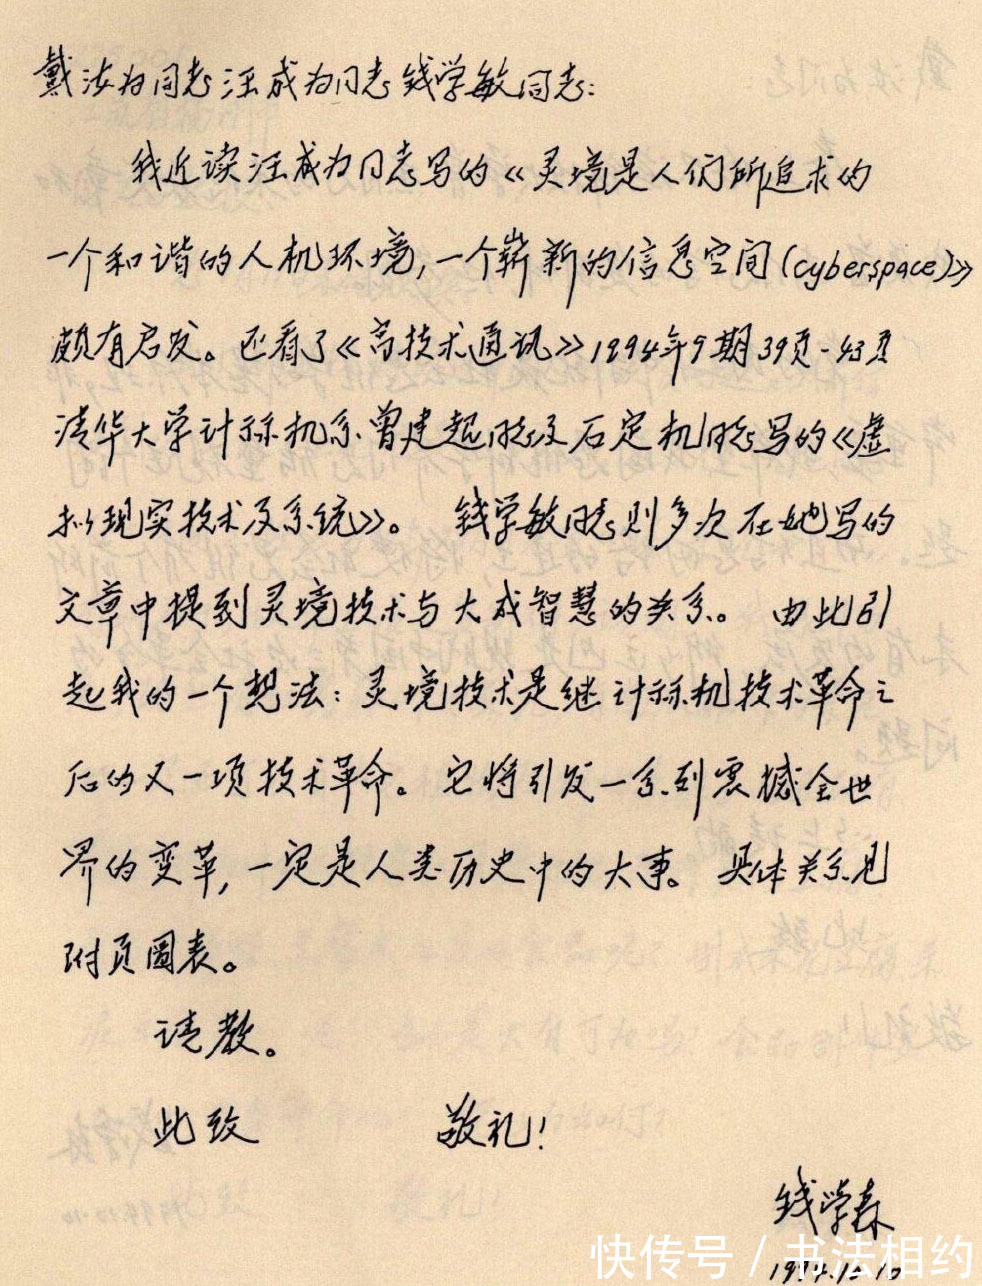 戴汝为同志汪成为同志钱学敏同志：
我近读汪成为同志写的《灵境是人们所追求的
一个和谐的人机环境，一个崭新的信息空间(cyberspace)》
颇有启发。还看了《高技术通讯》1994年9期39页-43页
清华大学计算机系曾建超同志及石定机同志写的《虚
拟现实技术及系统》。 钱学敏同志则多次在她写的
文章中提到灵境技术与大成智慧的关系。 由此引
起我的一个想法：灵境技术是继计算机技术革命之
后的又一项技术革命。它将引发一系列震撼全世
界的变革，一定是人类历史中的大事。 具体关系见
附页图表。
请教。
此致 敬礼！
钱学森
1994.10.10
快传号 / 书法相约